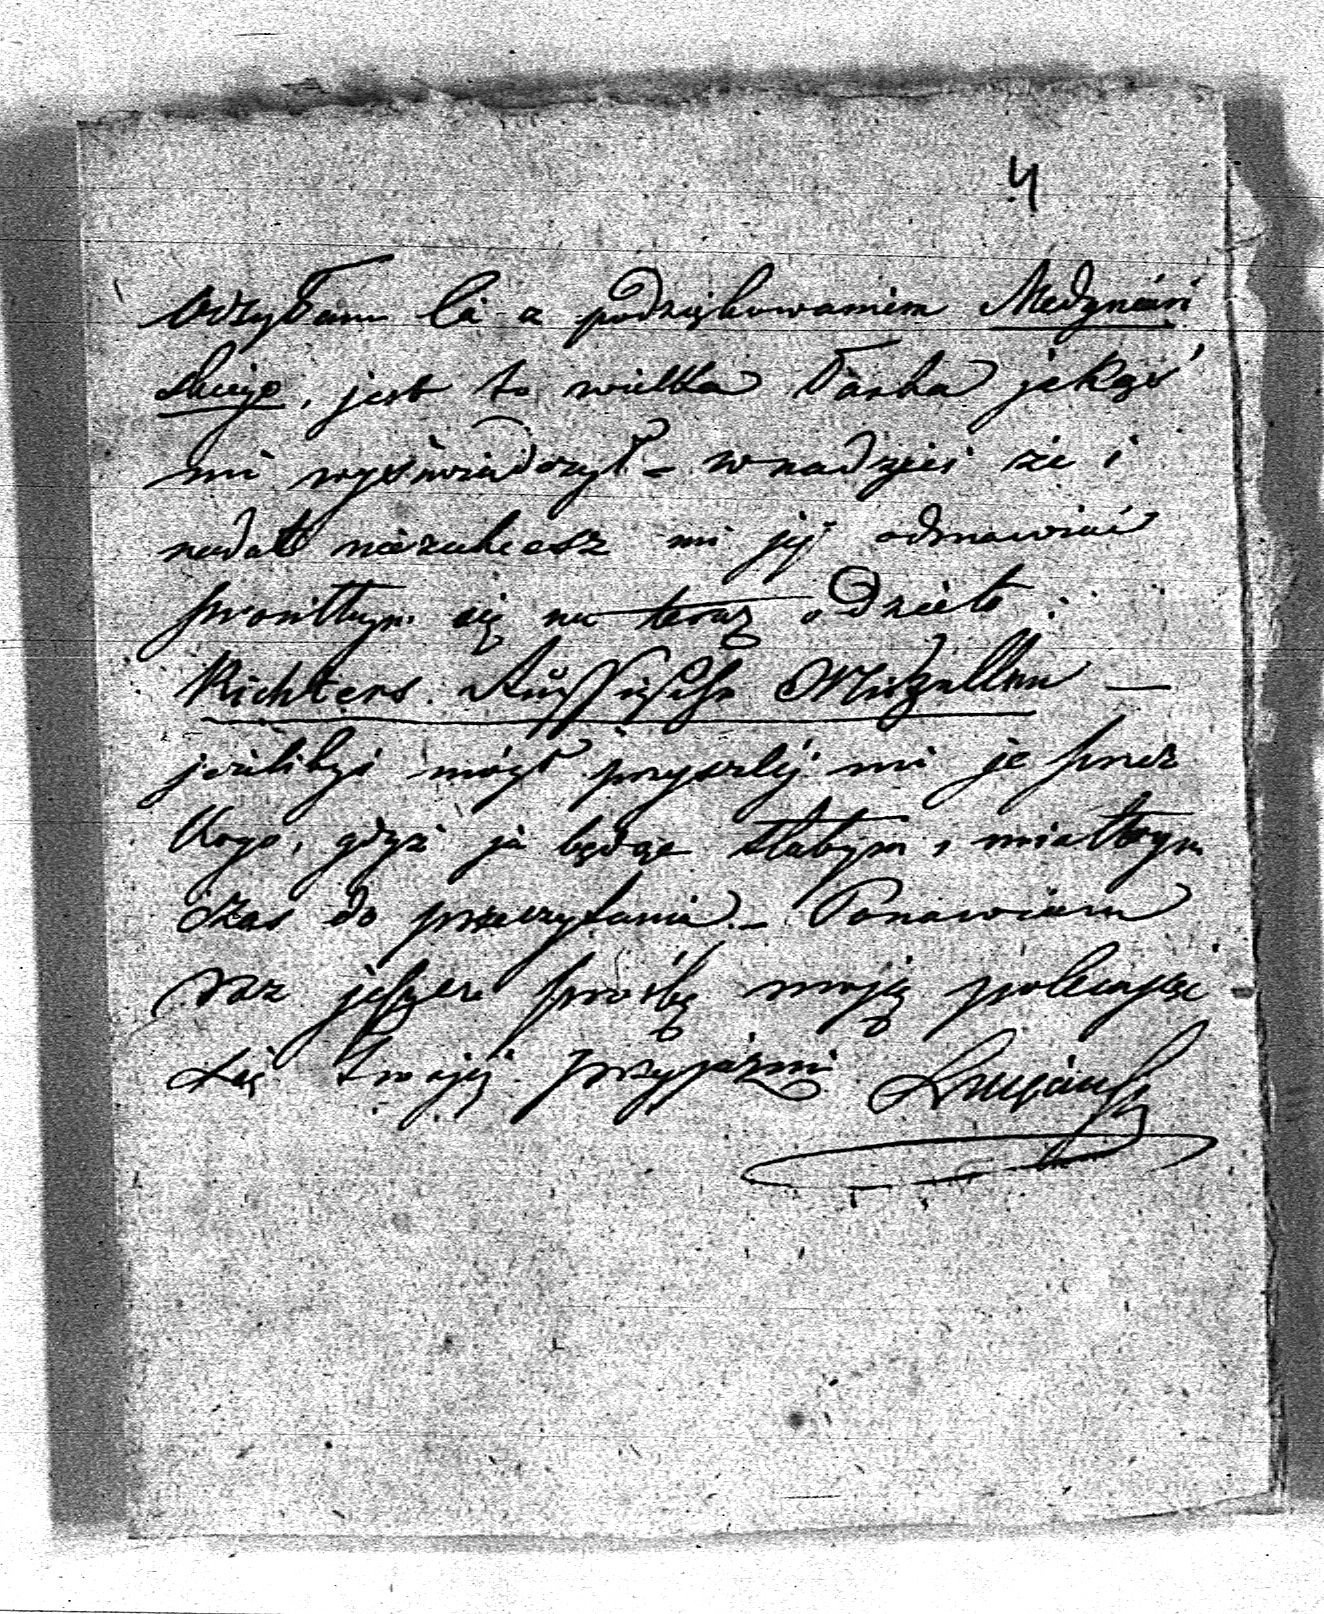 4
Odsyłam Ci z podziękowaniem
skiego, jest to wielka łaska jakęś
mi wyświadczył – w nadziei że i
nadal niezechcesz mi jej odmawiać
prosiłbym się na teraz o Dzieło :
Richters Russische Miszellen —
jeżelibyś mógł przyszlij mi je przez
kogo, gdyż ja będąc słabym, miałbym
czas do przeczytania. – Ponawiam
raz jeszcze prośbę moją polecając
się Twojej przyjaźni